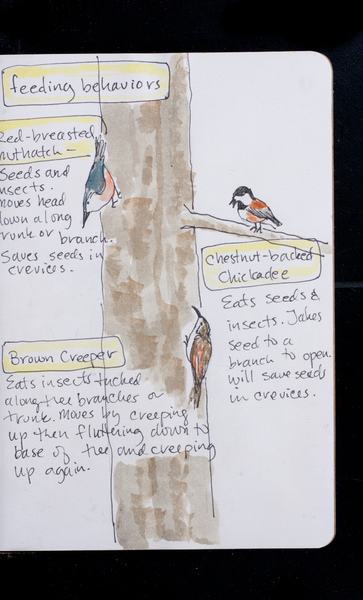 feeding behaviors
Red-breasted
nuthatch -
Seeds and
insects.
Moves head
down along
trunk or branch.
Saves seeds in
crevices.
chestnut-backed
Chickadee
Eats seeds &
insects. Takes
seed to a
branch to open.
will save seeds
in crevices.
Brown Creeper
Eats insects tucked
along tree branches or
trunk. Moves by creeping
up then fluttering down to
base of tree and creeping
up again.